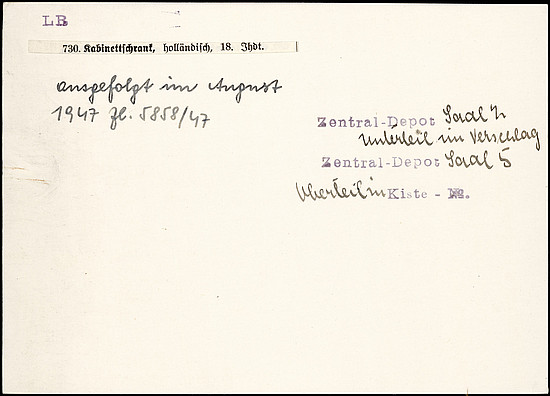 LB
730. Kabinettschrank, holländisch, 18. Jhdt.
ausgefolgt im August
1947 Zl. 5858/47
Zentral-Depot Saal
Unterteil im Verschlag
Zentral-Depot Saal 5
Oberteil in Kiste - Nr.